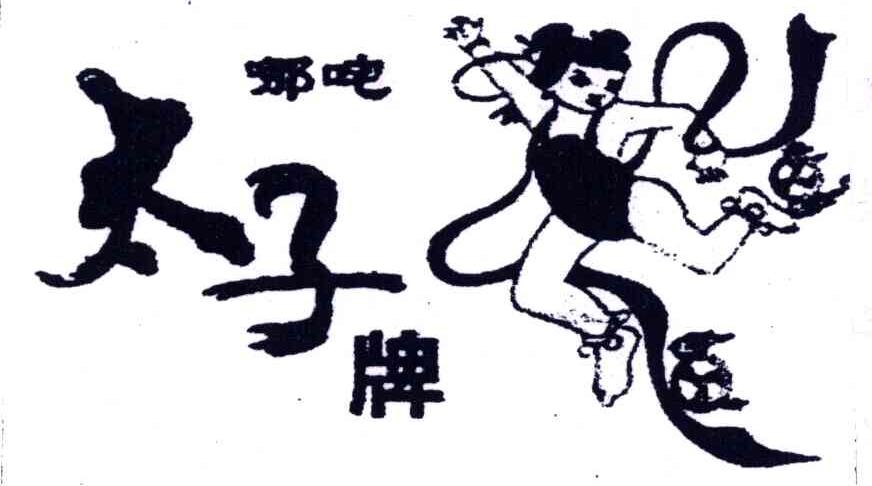 哪吒
太子
牌